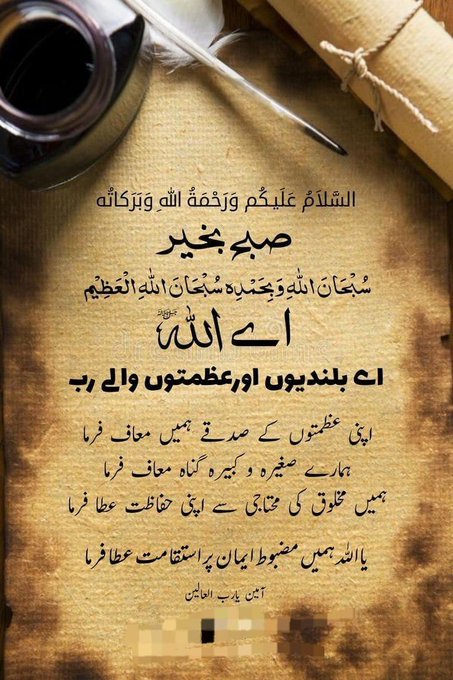 السَّلاَمُ عَلَيكُم وَرَحْمَةُ اللهِ وَبَرَكاتُه
صبح بخیر
سُبْحَانَ اللهِ وَبِحَمْدِهٖ سُبْحَانَ اللهِ الْعَظِيْمِ
اے اللہ ﷻ
اے بلندیوں اور عظمتوں والے رب
اپنی عظمتوں کے صدقے ہمیں معاف فرما
ہمارے صغیرہ و کبیرہ گناہ معاف فرما
ہمیں مخلوق کی محتاجی سے اپنی حفاظت عطا فرما
یااللہ ہمیں مضبوط ایمان پر استقامت عطا فرما
آمین یارب العالین